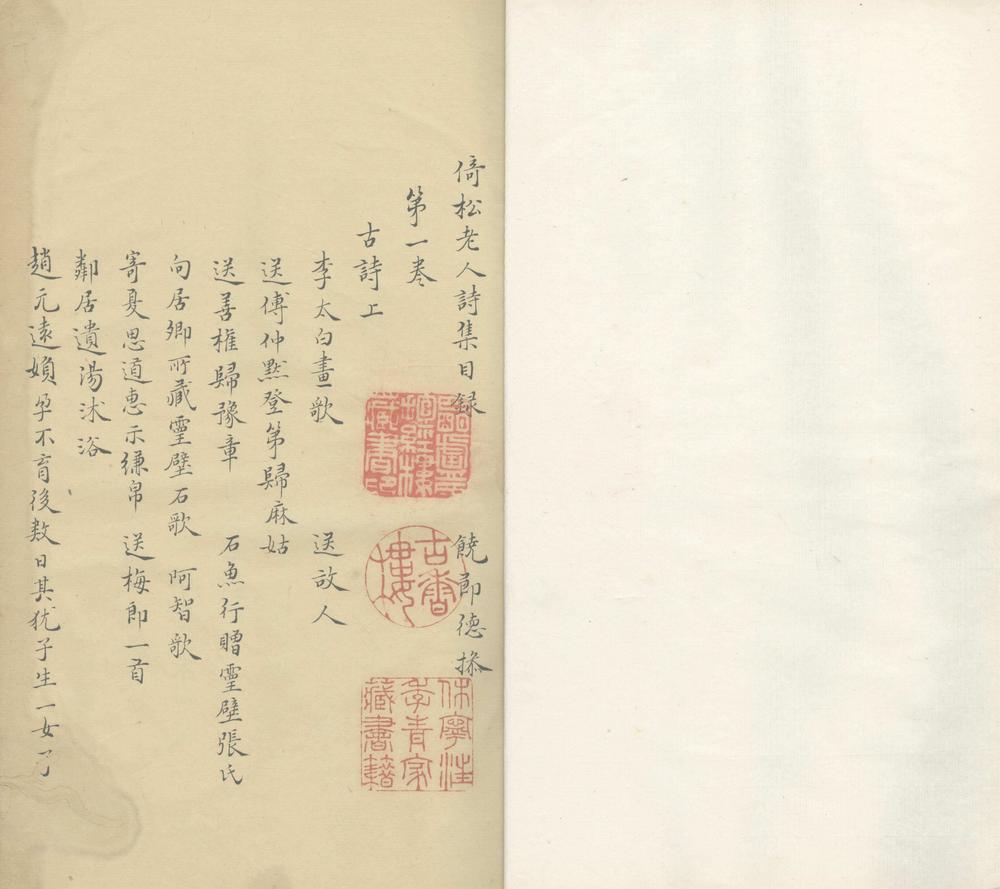 倚松老人詩集目録　饒節德操
第一卷
古詩上
李太白畫歌　送故人
送傅仲黙登第歸麻姑
送善權歸豫章　石魚行贈靈壁張氏
向居卿所藏靈壁石歌　阿智歌
寄夏思道惠示縑帛　送梅郎一首
鄰居遺湯沐浴
趙元遠嬪孕不育後数日其犹子生一女
古香樓
休寧汪季青家藏書籍